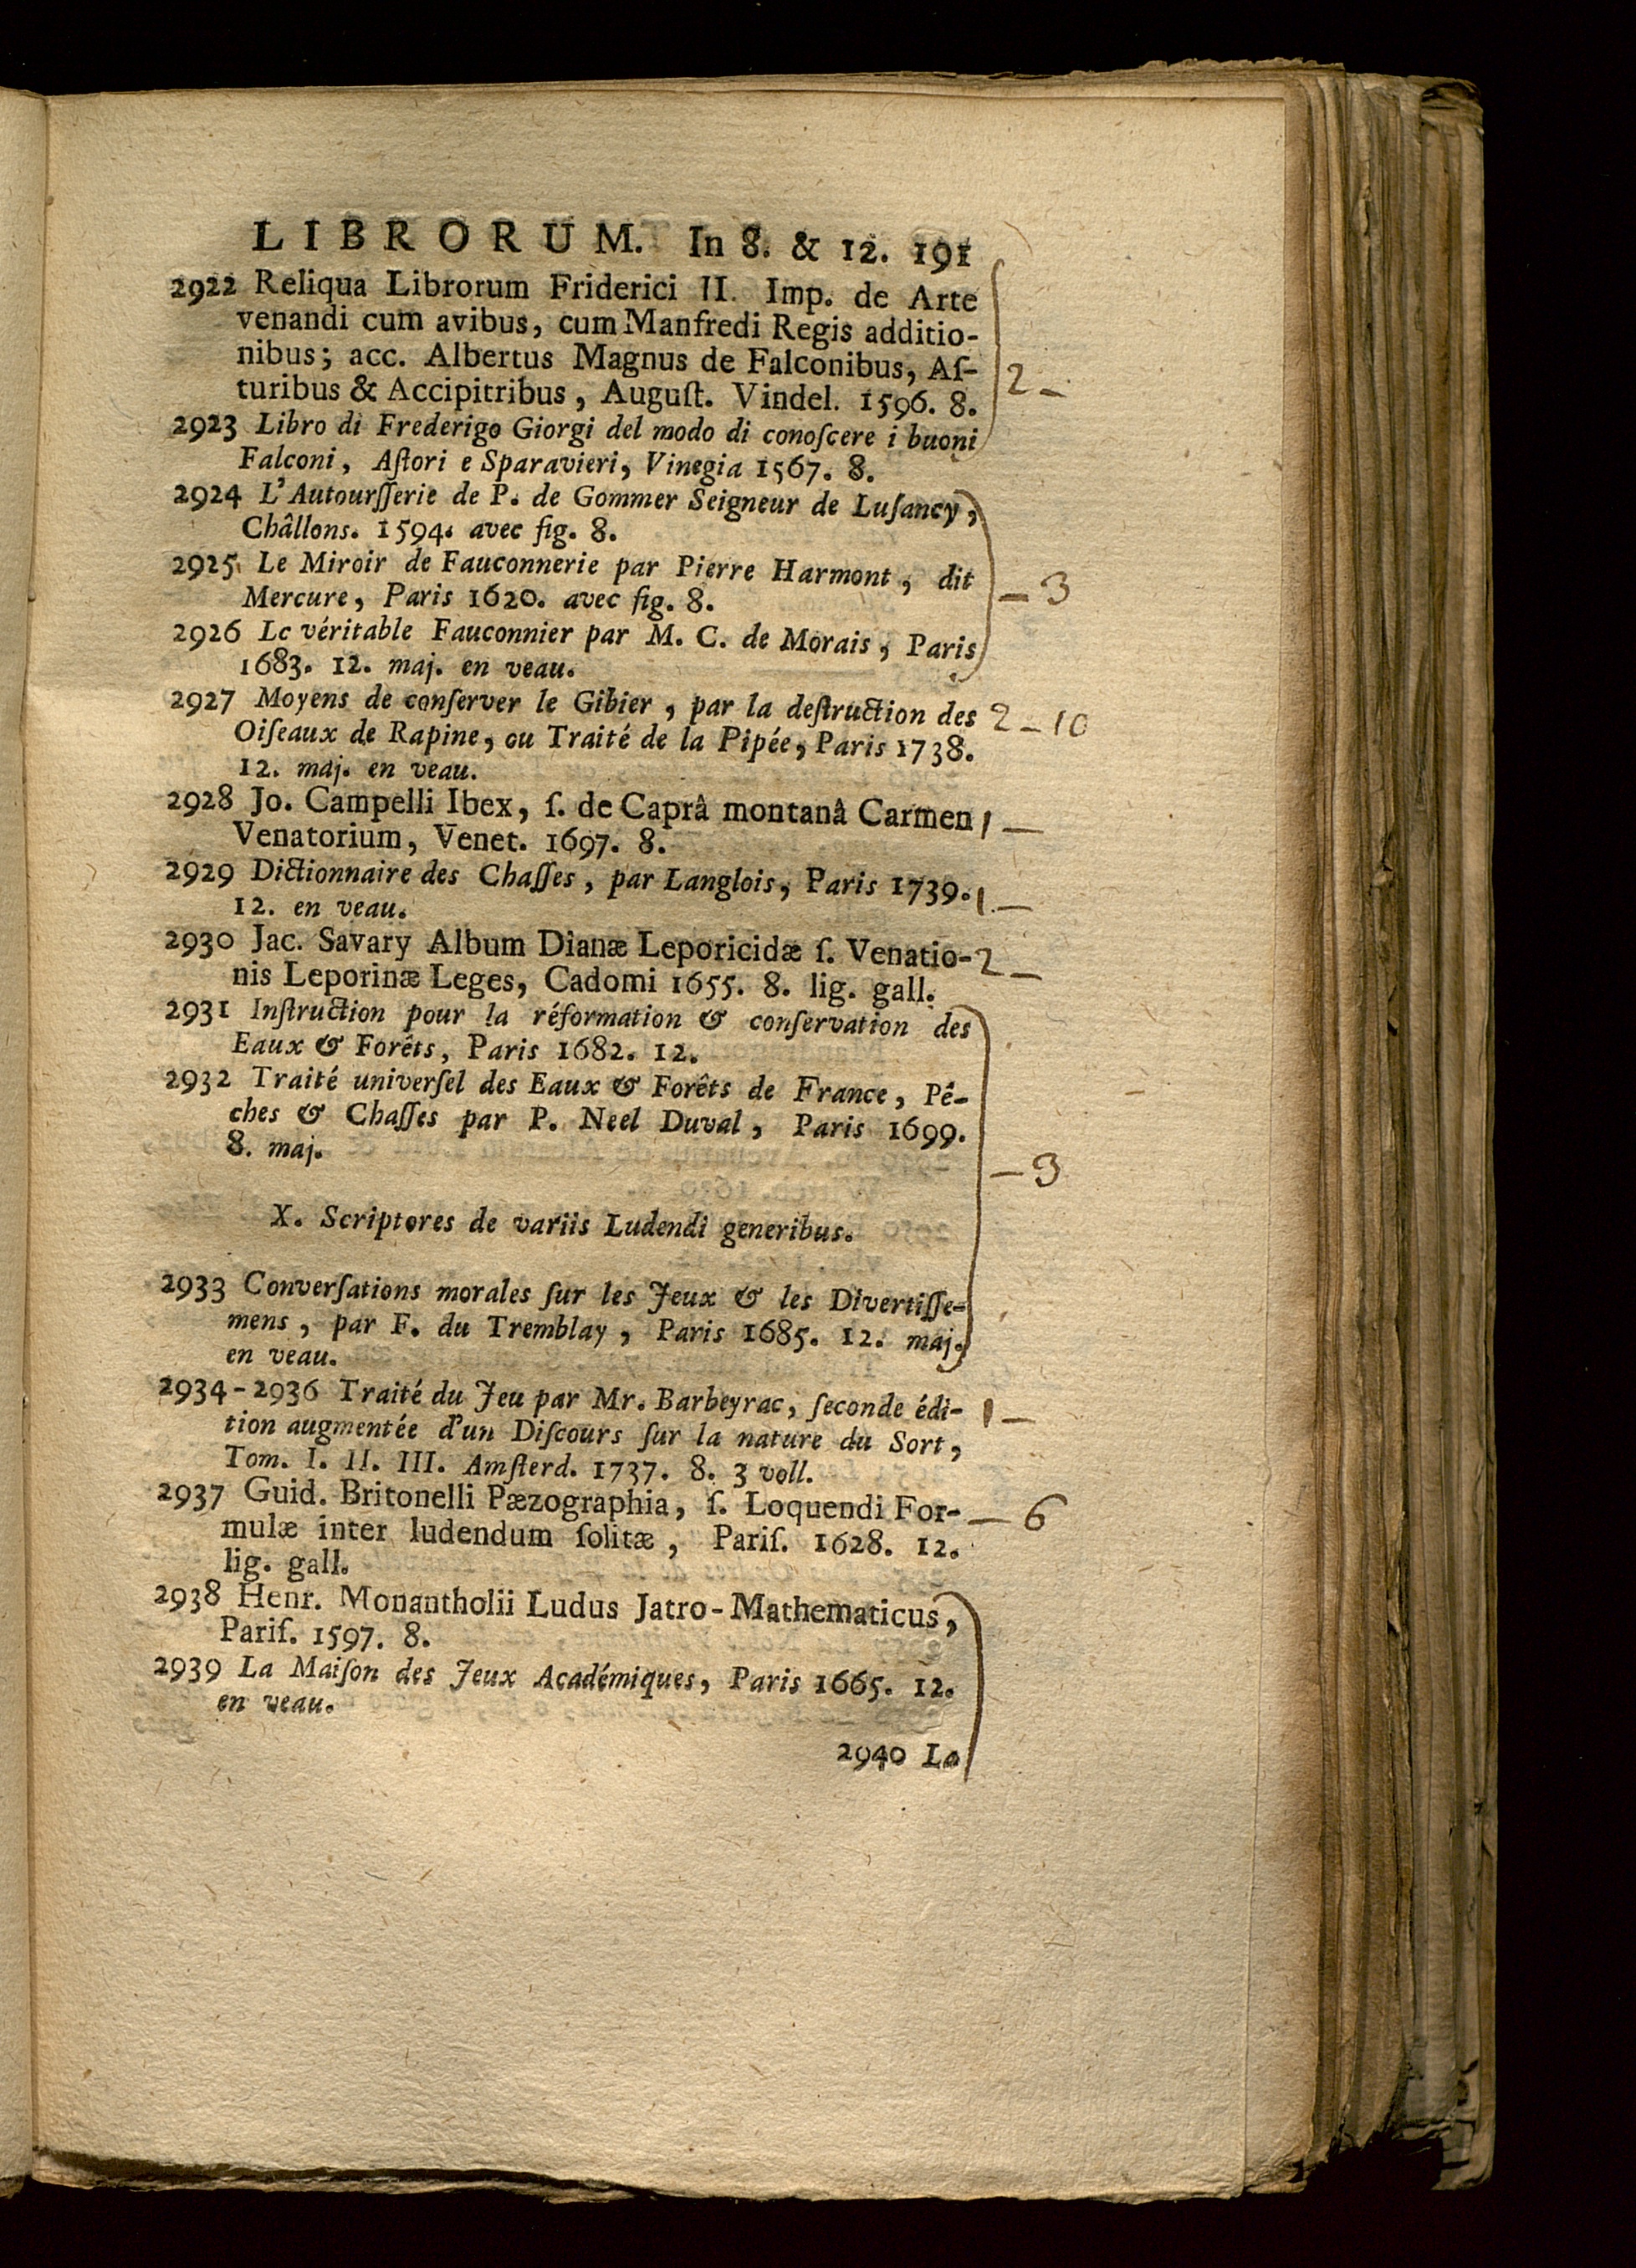 LIBRORUM. In 8. & 12. 191
2922 Reliqua Librorum Friderici II. Imp. de Arte
venandi cum avibus, cum Manfredi Regis additio-
nibus; acc. Albertus Magnus de Falconibus, Aſ-
turibus & Accipitribus, Auguſt. Vindel. 1596. 8.
2 —
2923 Libro di Frederigo Giorgi del modo di conoſcere i buoni
Falconi, Aſtori e Sparavieri, Vinegia 1567. 8.
2924 L'Autourſſerie de P. de Gommer Seigneur de Luſancy,
Châllons. 1594. avec fig. 8.
2925 Le Miroir de Fauconnerie par Pierre Harmont, dit
Mercure, Paris 1620. avec fig. 8.
— 3
2926 Le véritable Fauconnier par M. C. de Morais, Paris
1683. 12. maj. en veau.
2927 Moyens de conſerver le Gibier, par la deſtruction des 2 — 10
Oiſeaux de Rapine, ou Traité de la Pipée, Paris 1738.
12. maj. en veau.
2928 Jo. Campelli Ibex, ſ. de Caprâ montanâ Carmen 1 —
Venatorium, Venet. 1697. 8.
2929 Dictionnaire des Chaſſes, par Langlois, Paris 1739. 1 —
12. en veau.
2930 Jac. Savary Album Dianæ Leporicidæ ſ. Venatio- 2 —
nis Leporinæ Leges, Cadomi 1655. 8. lig. gall.
2931 Inſtruction pour la réformation & conſervation des
Eaux & Forêts, Paris 1682. 12.
2932 Traité univerſel des Eaux & Forêts de France, Pê-
ches & Chaſſes par P. Neel Duval, Paris 1699.
8. maj.
— 3
X. Scriptores de variis Ludendi generibus.
2933 Converſations morales ſur les Jeux & les Divertiſſe-
mens, par F. du Tremblay, Paris 1685. 12. maj.
en veau.
2934-2936 Traité du Jeu par Mr. Barbeyrac, ſeconde édi- 1 —
tion augmentée d'un Diſcours ſur la nature du Sort,
Tom. I. II. III. Amſterd. 1737. 8. 3 voll.
2937 Guid. Britonelli Pæzographia, ſ. Loquendi For- — 6
mulæ inter ludendum ſolitæ, Pariſ. 1628. 12.
lig. gall.
2938 Henr. Monantholii Ludus Jatro-Mathematicus,
Pariſ. 1597. 8.
2939 La Maiſon des Jeux Académiques, Paris 1665. 12.
en veau.
2940 La